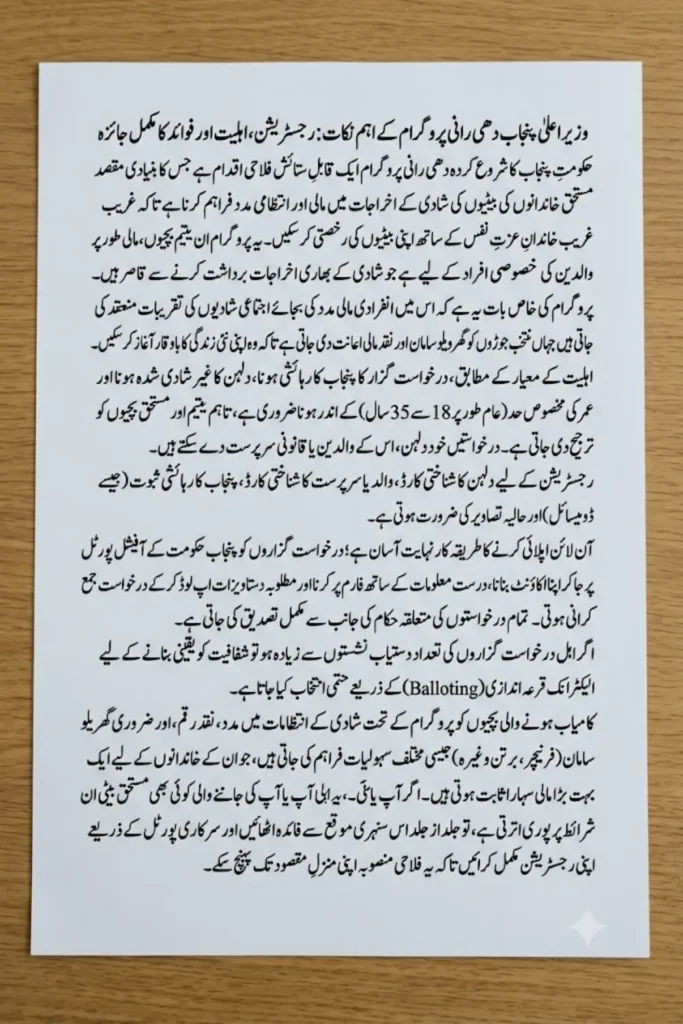 وزیراعلیٰ پنجاب دھی رانی پروگرام کے اہم نکات: رجسٹریشن، اہلیت اور فوائد کا مکمل جائزہ
حکومتِ پنجاب کا شروع کردہ دھی رانی پروگرام ایک قابلِ ستائش فلاحی اقدام ہے جس کا بنیادی مقصد
مستحق خاندانوں کی بیٹیوں کی شادی کے اخراجات میں مالی اور انتظامی مدد فراہم کرنا ہے تاکہ غریب
غریب خاندانِ عزتِ نفس کے ساتھ اپنی بیٹیوں کی رخصتی کر سکیں۔ یہ پروگرام ان یتیم بچیوں، مالی طور پر
والدین کی خصوصی افراد کے لیے ہے جو شادی کے بھاری اخراجات برداشت کرنے سے قاصر ہیں۔
پروگرام کی خاص بات یہ ہے کہ اس میں انفرادی مالی مدد کی بجائے اجتماعی شادیوں کی تقریبات منعقد کی
جاتی ہیں جہاں منتخب جوڑوں کو گھریلو سامان اور نقد مالی اعانت دی جاتی ہے تاکہ وہ اپنی نئی زندگی کا باوقار آغاز کر سکیں۔
اہلیت کے معیار کے مطابق، درخواست گزار کا پنجاب کا رہائشی ہونا، دلہن کا غیر شادی شدہ ہونا اور
عمر کی مخصوص حد (عام طور پر 18 سے 35 سال) کے اندر ہونا ضروری ہے، تاہم یتیم اور مستحق بچیوں کو
ترجیح دی جاتی ہے۔ درخواستیں خود دلہن، اس کے والدین یا قانونی سرپرست دے سکتے ہیں۔
رجسٹریشن کے لیے دلہن کا شناختی کارڈ، والد یا سرپرست کا شناختی کارڈ، پنجاب کا رہائشی ثبوت (جیسے
ڈومیسائل) اور حالیہ تصاویر کی ضرورت ہوتی ہے۔
آن لائن اپلائی کرنے کا طریقہ کار نہایت آسان ہے؛ درخواست گزاروں کو پنجاب حکومت کے آفیشل پورٹل
پر جا کر اپنا اکاؤنٹ بنانا، درست معلومات کے ساتھ فارم پر کرنا اور مطلوبہ دستاویزات اپ لوڈ کر کے درخواست جمع
کرانی ہوتی۔ تمام درخواستوں کی متعلقہ حکام کی جانب سے مکمل تصدیق کی جاتی ہے۔
اگر اہل درخواست گزاروں کی تعداد دستیاب نشستوں سے زیادہ ہو تو شفافیت کو یقینی بنانے کے لیے
الیکٹرانک قرعہ اندازی (Balloting) کے ذریعے حتمی انتخاب کیا جاتا ہے۔
کامیاب ہونے والی بچیوں کو پروگرام کے تحت شادی کے انتظامات میں مدد، نقد رقم، اور ضروری گھریلو
سامان (فرنیچر، برتن وغیرہ) جیسی مختلف سہولیات فراہم کی جاتی ہیں، جو ان کے خاندانوں کے لیے ایک
بہت بڑا مالی سہارا ثابت ہوتی ہیں۔ اگر آپ یا آپ کی جاننے والی کوئی بھی مستحق بیٹی ان
شرائط پر پوری اترتی ہے، تو جلد از جلد اس سنہری موقع سے فائدہ اٹھائیں اور سرکاری پورٹل کے ذریعے
اپنی رجسٹریشن مکمل کرائیں تاکہ یہ فلاحی منصوبہ اپنی منزلِ مقصود تک پہنچ سکے۔